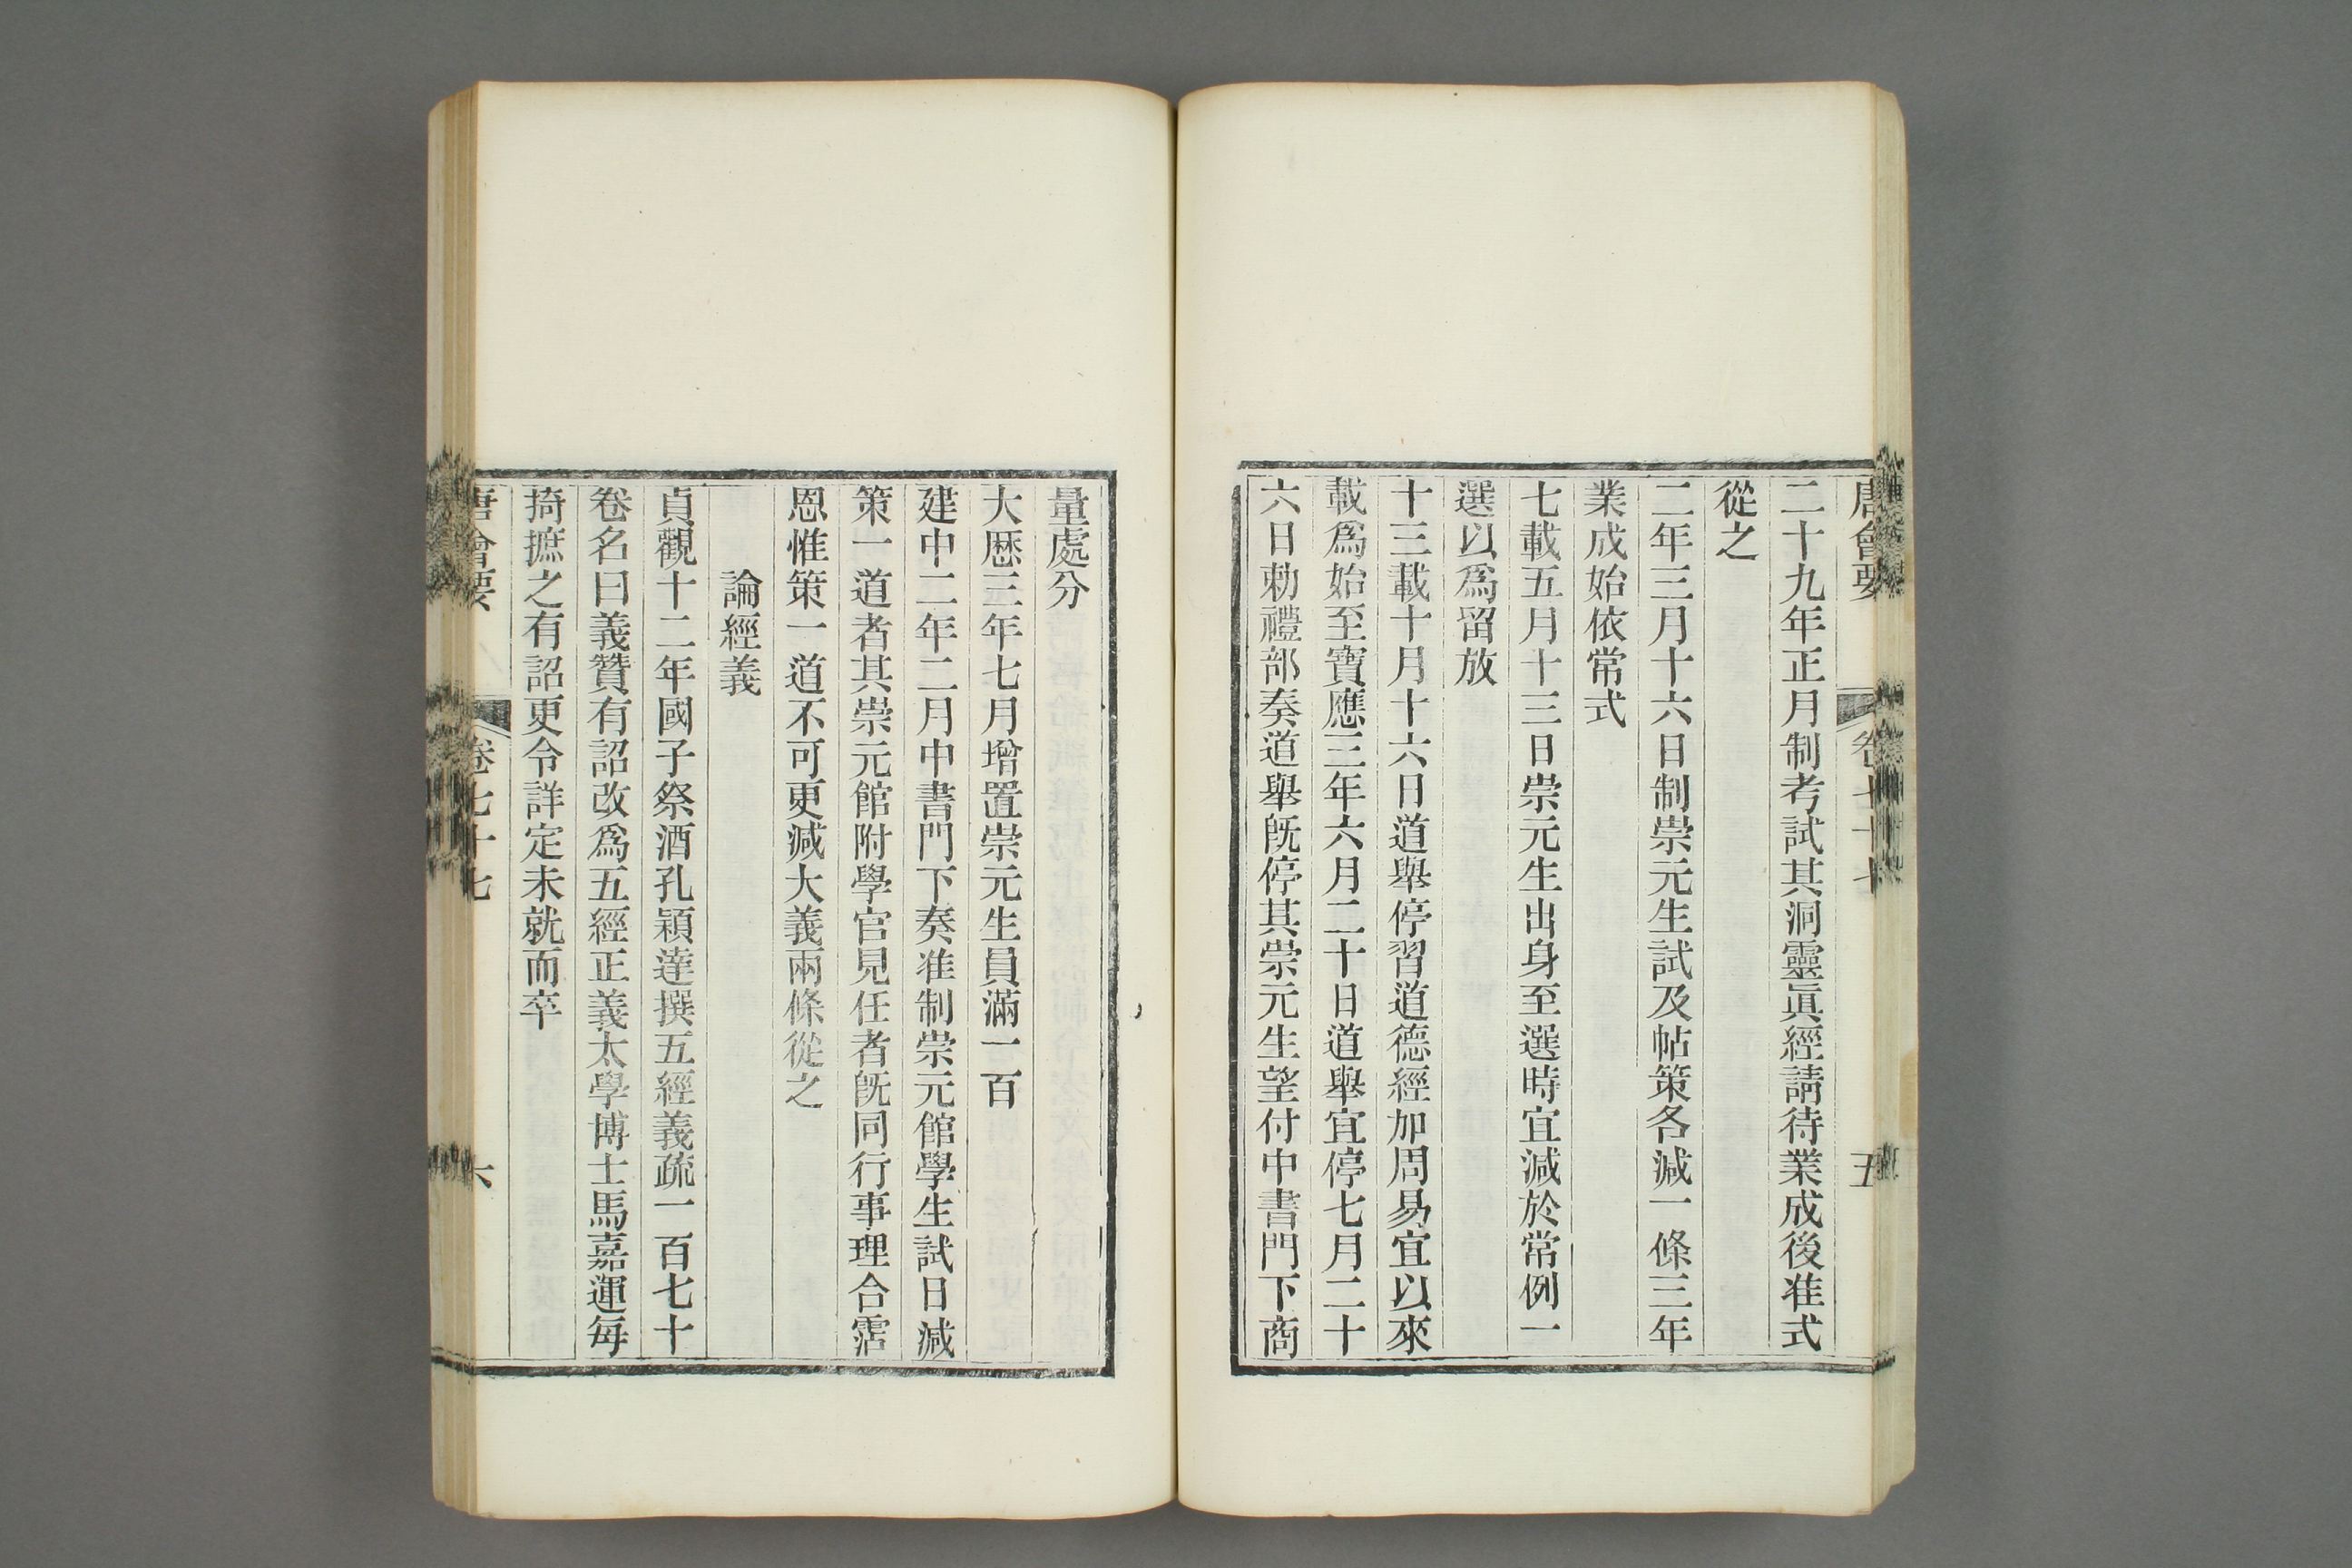 唐會要 卷七十七 五
二十九年正月制考試其洞靈眞經請待業成後准式
從之
二年三月十六日制崇元生試及帖策各減一條三年
業成始依常式
七載五月十三日崇元生出身至選時宜減於常例一
選以爲留放
十三載十月十六日道舉停習道德經加周易宜以來
載爲始至寶應三年六月二十日道舉宜停七月二十
六日勅禮部奏道舉旣停其崇元生望付中書門下商
量處分
大厯三年七月增置崇元生員滿一百
建中二年二月中書門下奏准制崇元館學生試日減
策一道者其崇元館附學官見任者旣同行事理合霑
恩惟策一道不可更減大義兩條從之
論經義
貞觀十二年國子祭酒孔穎達撰五經義疏一百七十
卷名曰義贊有詔改爲五經正義太學博士馬嘉運每
掎摭之有詔更令詳定未就而卒
唐會要 卷七十七 六